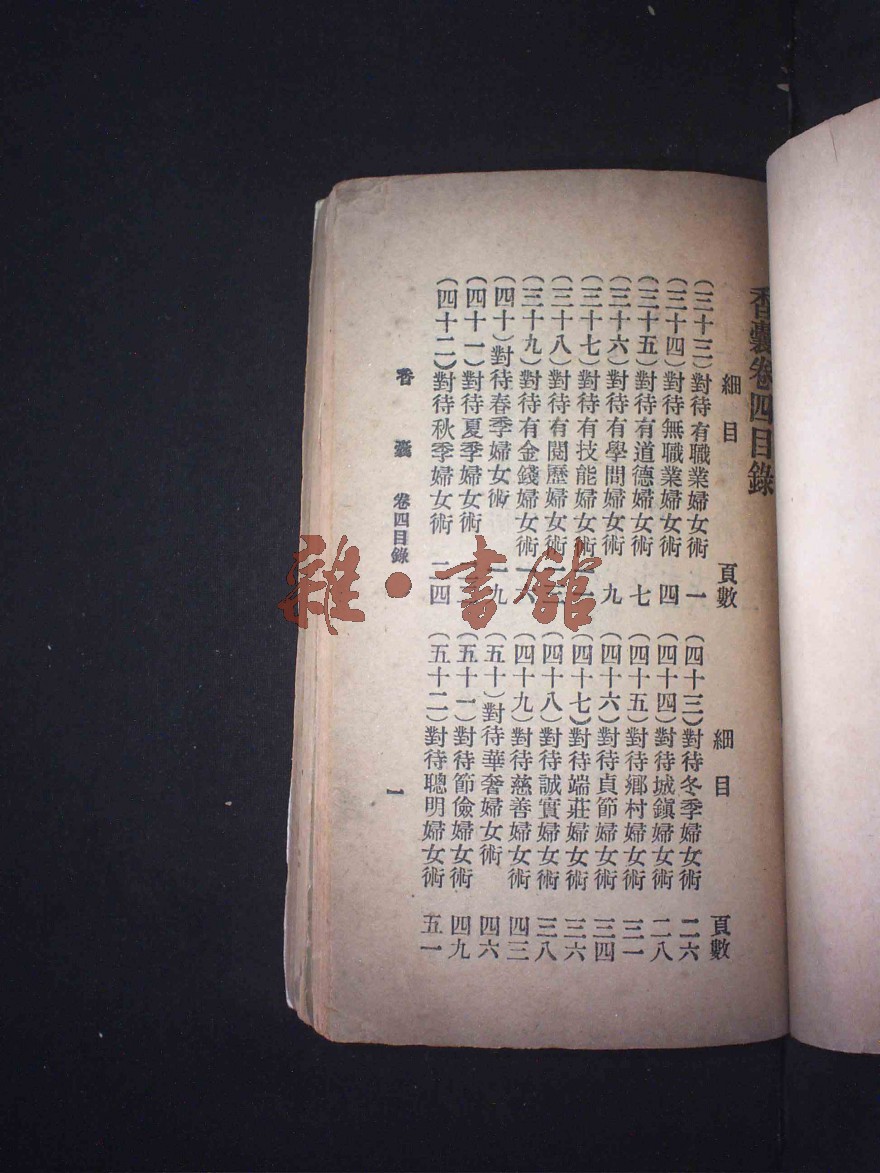 香囊卷四目錄
細目 頁數
(三十三)對待有職業婦女術 一
(三十四)對待無職業婦女術 四
(三十五)對待有道德婦女術 七
(三十六)對待有學問婦女術 九
(三十七)對待有技能婦女術
(三十八)對待有閱歷婦女術
(三十九)對待有金錢婦女術 一六
(四十)對待春季婦女術 一九
(四十一)對待夏季婦女術
(四十二)對待秋季婦女術 二四
細目 頁數
(四十三)對待冬季婦女術 二六
(四十四)對待城鎭婦女術 二八
(四十五)對待鄉村婦女術 三一
(四十六)對待貞節婦女術 三四
(四十七)對待端莊婦女術 三六
(四十八)對待誠實婦女術 三八
(四十九)對待慈善婦女術 四三
(五十)對待華奢婦女術 四六
(五十一)對待節儉婦女術 四九
(五十二)對待聰明婦女術 五一
香囊 卷四目錄 一
雜·書館